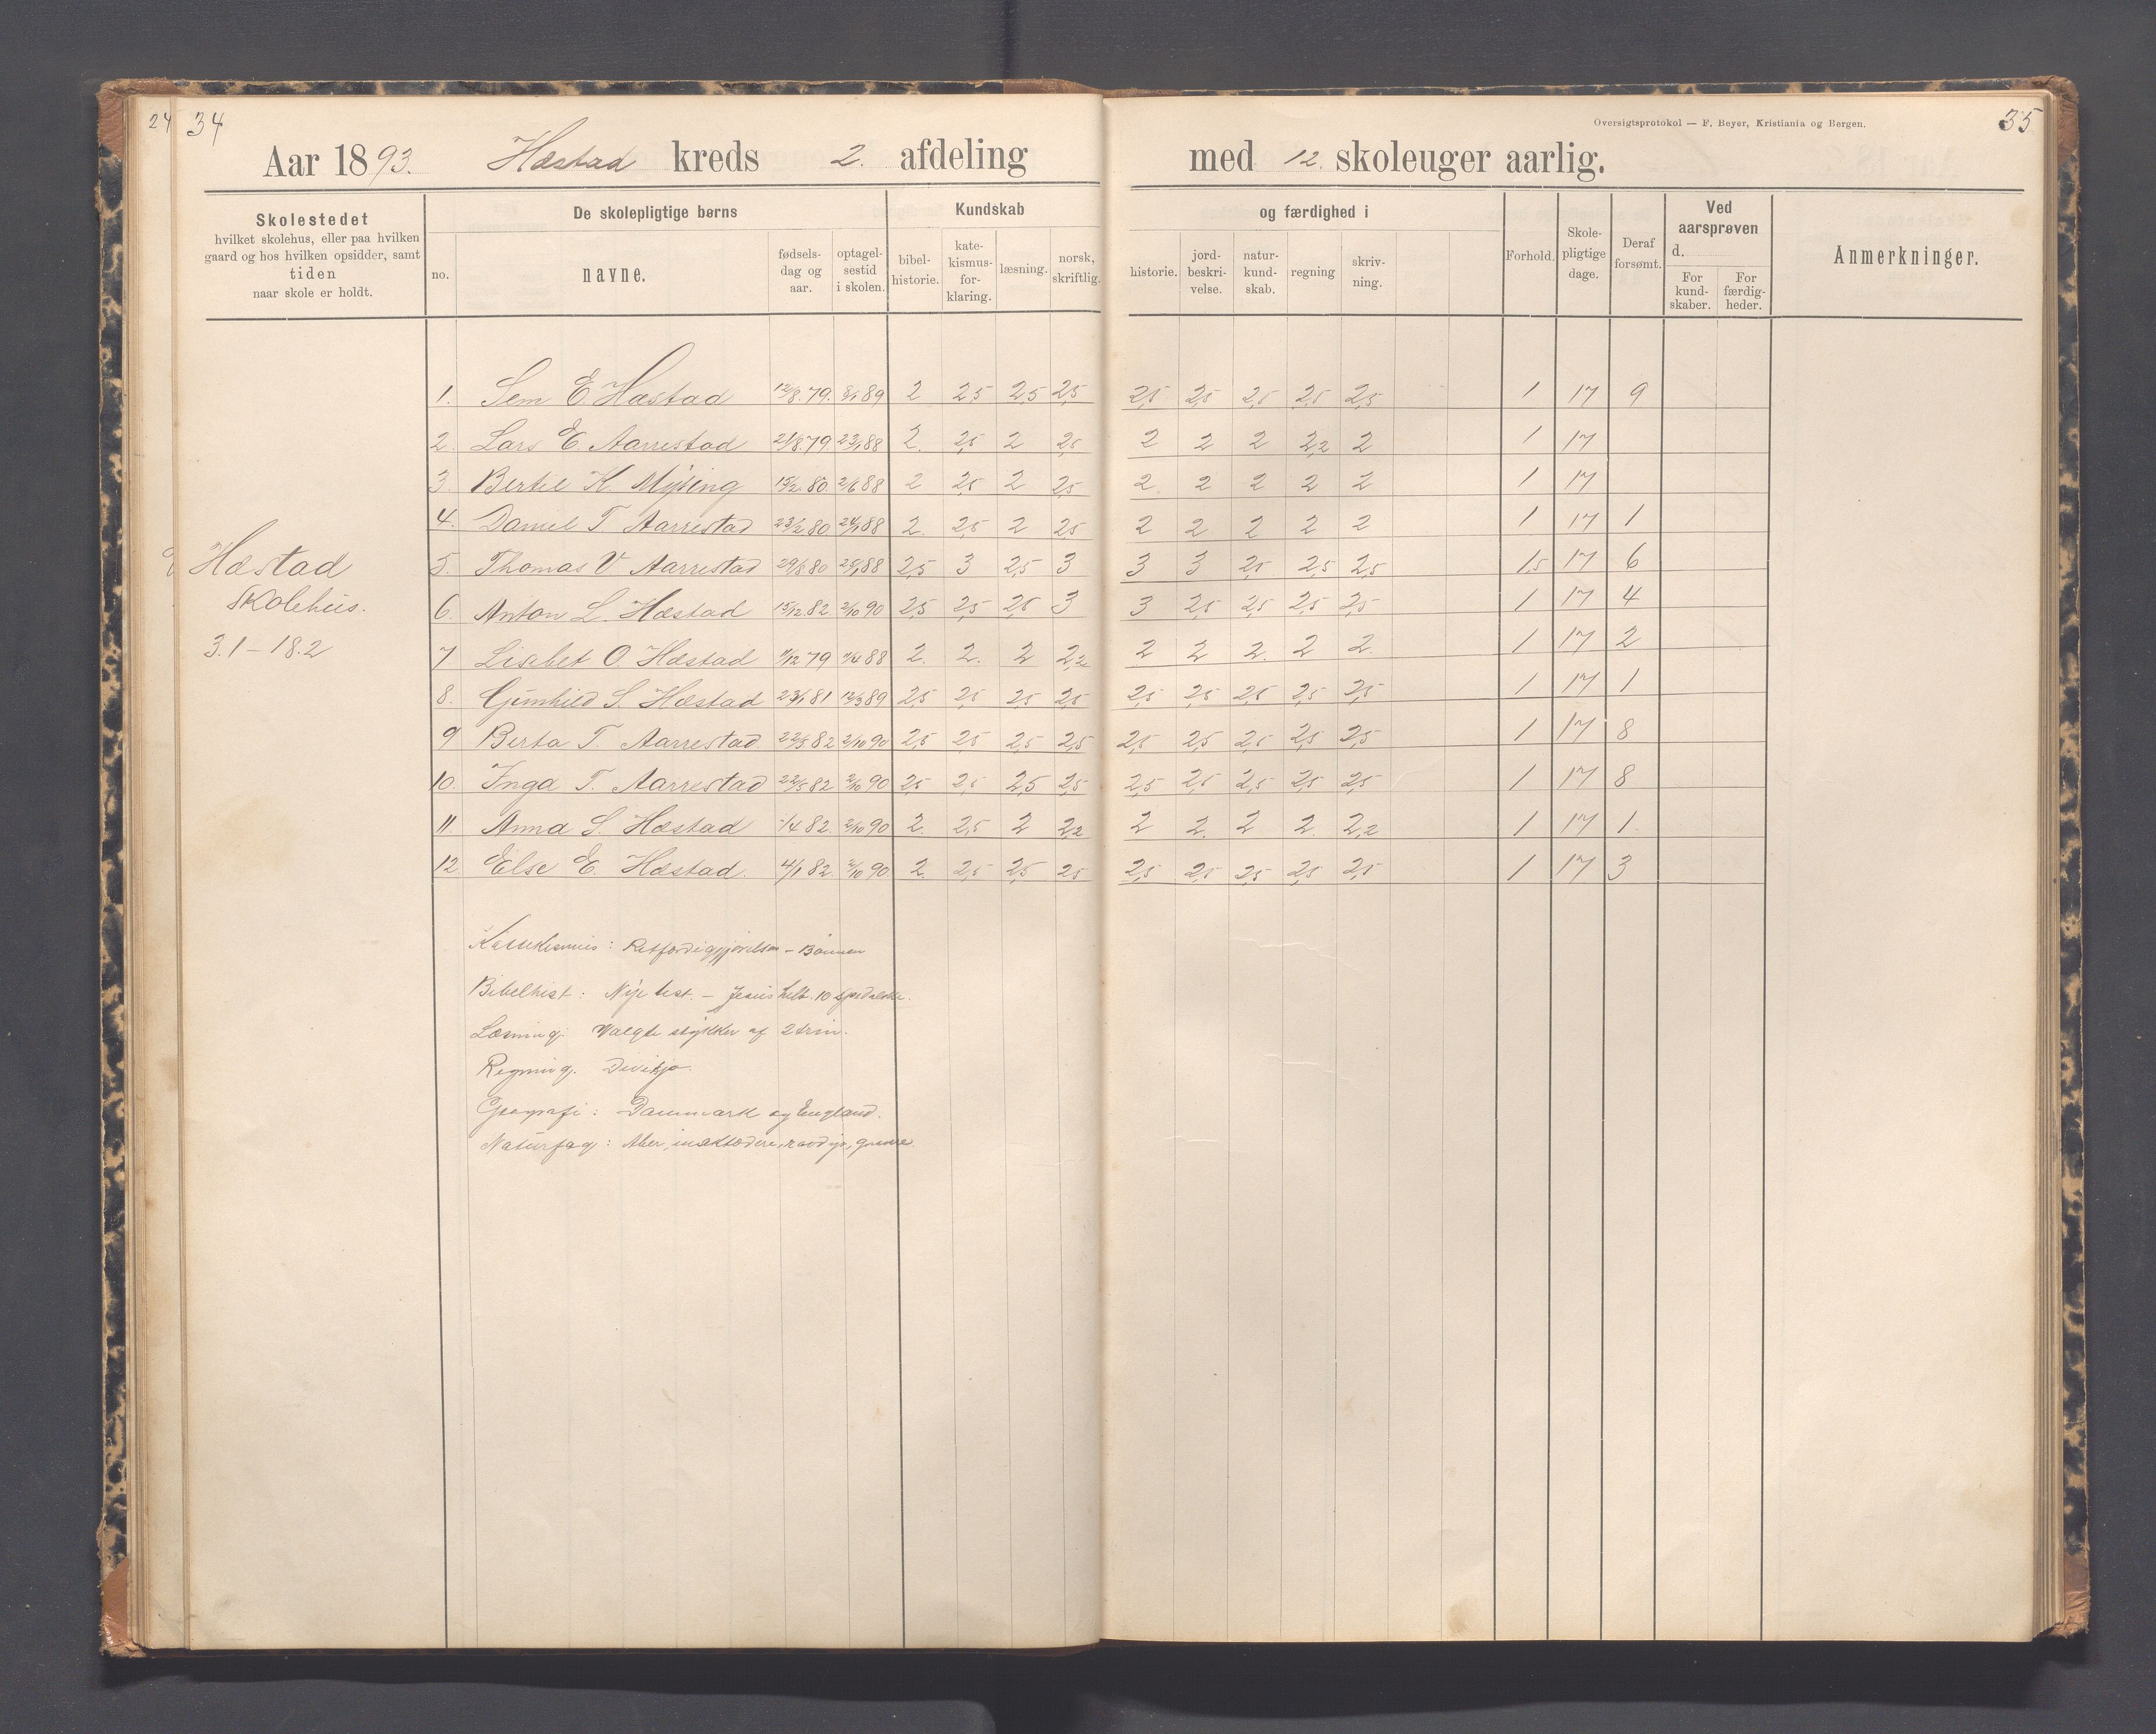 24 34
Oversigtsprotokol — F. Beyer, Kristiania og Bergen.
35
Aar 1893. Hæstad kreds 2. afdeling med 12. skoleuger aarlig.
Skolestedet
hvilket skolehus, eller paa hvilken
gaard og hos hvilken opsidder, samt
tiden
naar skole er holdt.
De skolepligtige børns
no.
navne.
fødsels-
dag og
aar.
optagel-
sestid
i skolen.
Kundskab
bibel-
historie.
kate-
kismus-
for-
klaring.
læsning.
norsk,
skriftlig.
og færdighed i
historie.
jord-
beskri-
velse.
natur-
kund-
skab.
regning
skriv-
ning.
Forhold.
Skole-
pligtige
dage.
Deraf
forsømt.
Ved
aarsprøven
d.
For
kund-
skaber.
For
færdig-
heder.
Anmerkninger.
1. Sem E. Hæstad 12/8.79. 89 2 2,5 2,5 2,5 2,5 2,5 2,5 2,5 2,5 1 17 9
2. Lars E. Aarrestad 21/8.79. 23/1 88 2. 2,5 2 2,5 2 2 2 2,2 2 1 17
3. Bertil K. Mysing 15/2.80. 2/6 88 2 2,5 2 2,5 2 2 2 2 2 1 17
4. Daniel T. Aarrestad 23/2 80 88 2. 2,5 2 2,5 2 2 2 2 2 1 17 1
5. Thomas V Aarrestad 29/8 80 88 2,5 3 2,5 3 3 3 2,5 2,5 2,5 1,5 17 6
6. Anton L. Hæstad 15/12.82 2/10 90 2,5 2,5 2,5 3 3 2,5 2,5 2,5 2,5 1 17 4
7 Lisabet O. Hæstad 79 88 2. 2. 2 2,2 2 2 2. 2 2. 1 17 2
8. Gunhild S. Hæstad 23/1 81 12/3 89 2,5 2,5 2,5 2,5 2,5 2,5 2,5 2,5 2,5 1 17 1
9 Berta T. Aarrestad. 22/5 82 2/10 90 2,5 2,5 2,5 2,5 2,5 2,5 2,5 2,5 2,5 1 17 8
10. Inga T. Aarrestad 22/5 82 2/10 90 2,5 2,5 2,5 2,5 2,5 2,5 2,5 2,5 2,5 1 17 8
11. Anna S. Hæstad /4 82. 2/10 90 2. 2,5 2 2,2 2 2. 2 2. 2,2 1 17 1.
12 Else E. Hæstad. 4/1 82. 2/10 90 2. 2,5 2,5 2,5 2,5 2,5 2,5 2,5 2,5 1 17 3
Hæstad
Skolehus.
3.1 – 18.2
Katekismus: Retfærdiggjørelsen – Bønnen
Bibelhist: Nye test. – Jesus helb. 10 spedalske.
Læsning: Valgte stykker af 2 trin.
Regning. Divisjo.
Geografi: Danmark og England.
Naturfag: Aber, insektædere, rovdyr, gnavere